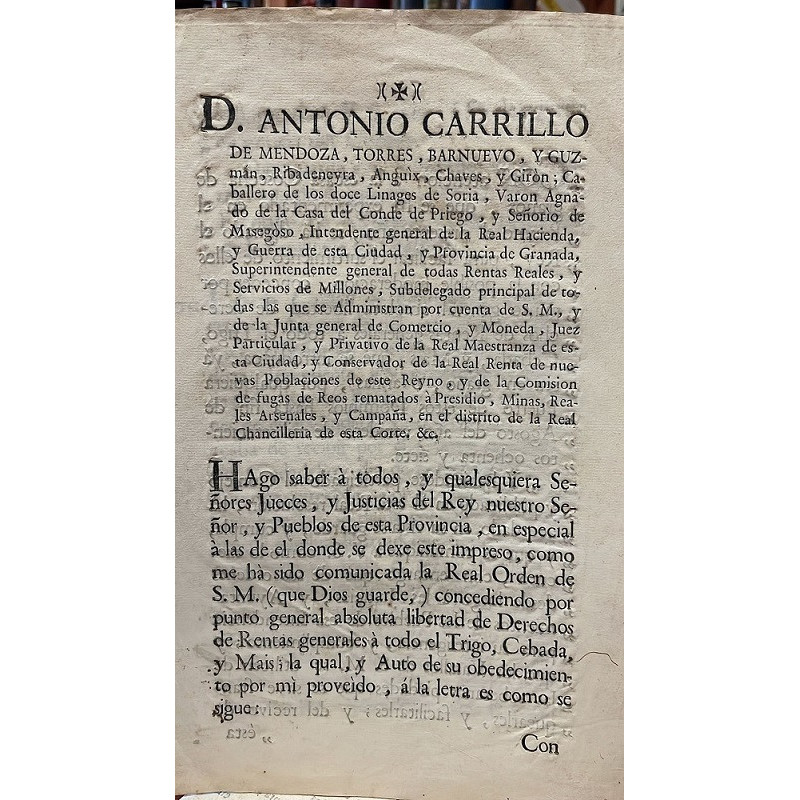 D. ANTONIO CARRILLO
DE MENDOZA, TORRES, BARNUEVO, Y GUZ-
màn, Ribadeneyra, Anguìx, Chaves, y Giròn; Ca-
ballero de los doce Linages de Soria, Varon Agna-
do de la Casa del Conde de Priego, y Señorio de
Masegòso, Intendente general de la Real Hacienda,
y Guerra de esta Ciudad, y Provincia de Granada,
Superintendente general de todas Rentas Reales, y
Servicios de Millones, Subdelegado principal de to-
das las que se Administran por cuenta de S. M., y
de la Junta general de Comercio, y Moneda, Juez
Particular, y Privativo de la Real Maestranza de es-
ta Ciudad, y Conservador de la Real Renta de nue-
vas Poblaciones de este Reyno, y de la Comision
de fugas de Reos rematados à Presidio, Minas, Rea-
les Arsenales, y Campaña, en el distrito de la Real
Chancilleria de esta Corte, &c.
HAgo saber à todos, y qualesquiera Se-
ñores Jueces, y Justicias del Rey nuestro Se-
ñor, y Pueblos de esta Provincia, en especial
à las de el donde se dexe este impreso, como
me hà sido comunicada la Real Orden de
S. M. (que Dios guarde,) concediendo por
punto general absoluta libertad de Derechos
de Rentas generales à todo el Trigo, Cebada,
y Mais; la qual, y Auto de su obedecimien-
to por mì proveìdo, á la letra es como se
sigue:
Con